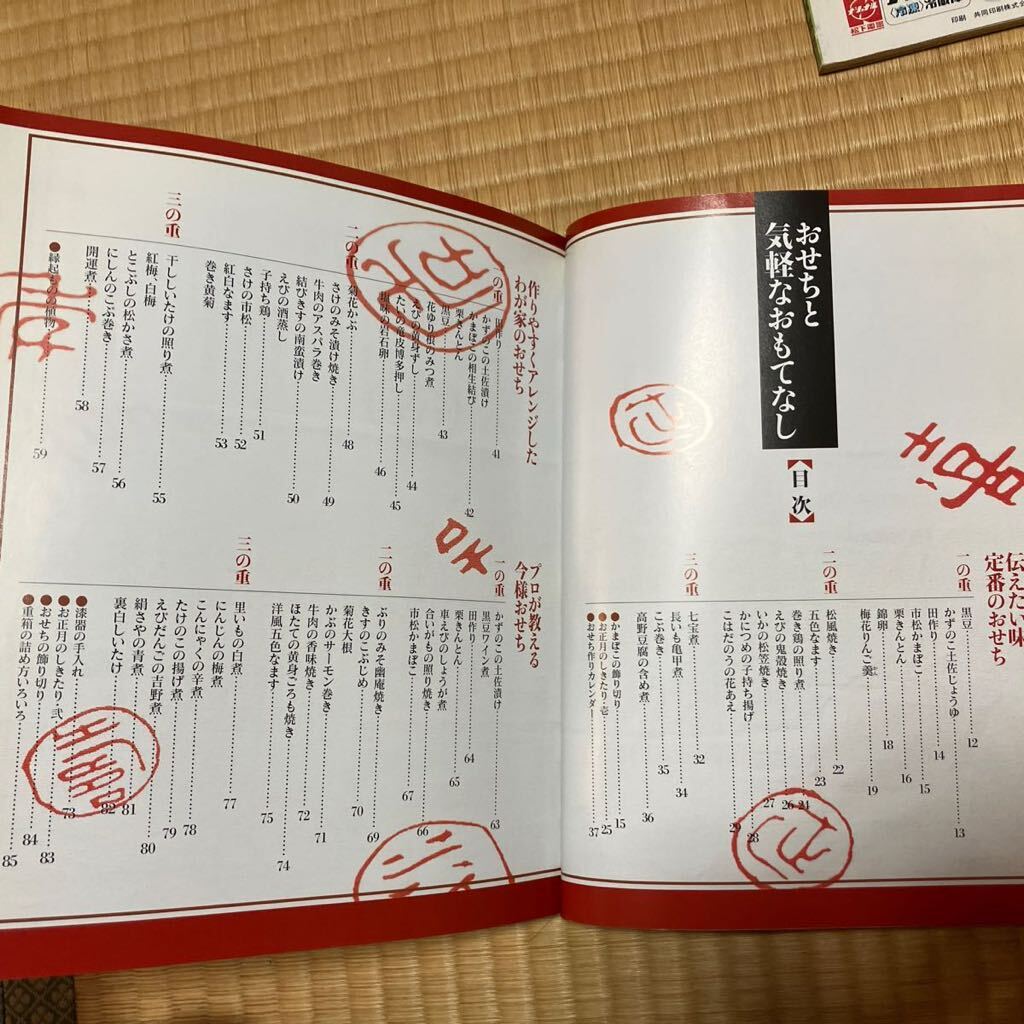 おせちと
気軽なおもてなし
【目次】
伝えたい味
定番のおせち
一の重
黒豆 12
かずのこ土佐じょうゆ 13
田作り 14
市松かまぼこ 15
栗きんとん 16
錦卵 18
梅花りんご羹 19
二の重
松風焼き 22
五色なます 23
巻き鶏の照り煮 24
えびの鬼殻焼き 26
いかの松笠焼き 27
かにつめの子持ち揚げ 28
こはだのうの花あえ 29
三の重
七宝煮 32
長いも亀甲煮 34
こぶ巻き 35
高野豆腐の含め煮 36
●かまぼこの飾り切り 15
●お正月のしきたり・壱 25
●おせち作りカレンダー 37
作りやすくアレンジした
わが家のおせち
一の重
田作り 41
かずのこの土佐漬け
かまぼこの相生結び 42
栗きんとん
黒豆 43
花ゆり根のみつ煮
えびの黄身ずし 44
たいの竜皮博多押し 45
の岩石卵 46
二の重
菊花かぶ 48
さけのみそ漬け焼き
牛肉のアスパラ巻き 49
結びきすの南蛮漬け 50
えびの酒蒸し
子持ち鶏 51
さけの市松 52
紅白なます 53
巻き黄菊
三の重
干ししいたけの照り煮 55
紅梅、白梅
とこぶしの松かさ煮 56
にしんのこぶ巻き 57
開運煮 58
●縁起ものの植物 59
プロが教える
今様おせち
一の重
かずのこの土佐漬け 63
黒豆ワイン煮
田作り 64
栗きんとん 65
車えびのしょうが煮
合いがもの照り焼き 66
市松かまぼこ 67
二の重
ぶりのみそ幽庵焼き 69
きすのこぶじめ
菊花大根 70
かぶのサーモン巻き 71
牛肉の香味焼き 72
ほたての黄身ごろも焼き 74
洋風五色なます 75
三の重
里いもの白煮 77
にんじんの梅煮
こんにゃくの辛煮 78
たけのこの揚げ煮 79
えびだんごの吉野煮 80
絹さやの青煮 81
裏白しいたけ 82
●漆器の手入れ 73
●お正月のしきたり・弐 83
●おせちの飾り切り 84
●重箱の詰め方いろいろ 85
松下電器
印刷 共同印刷株式会